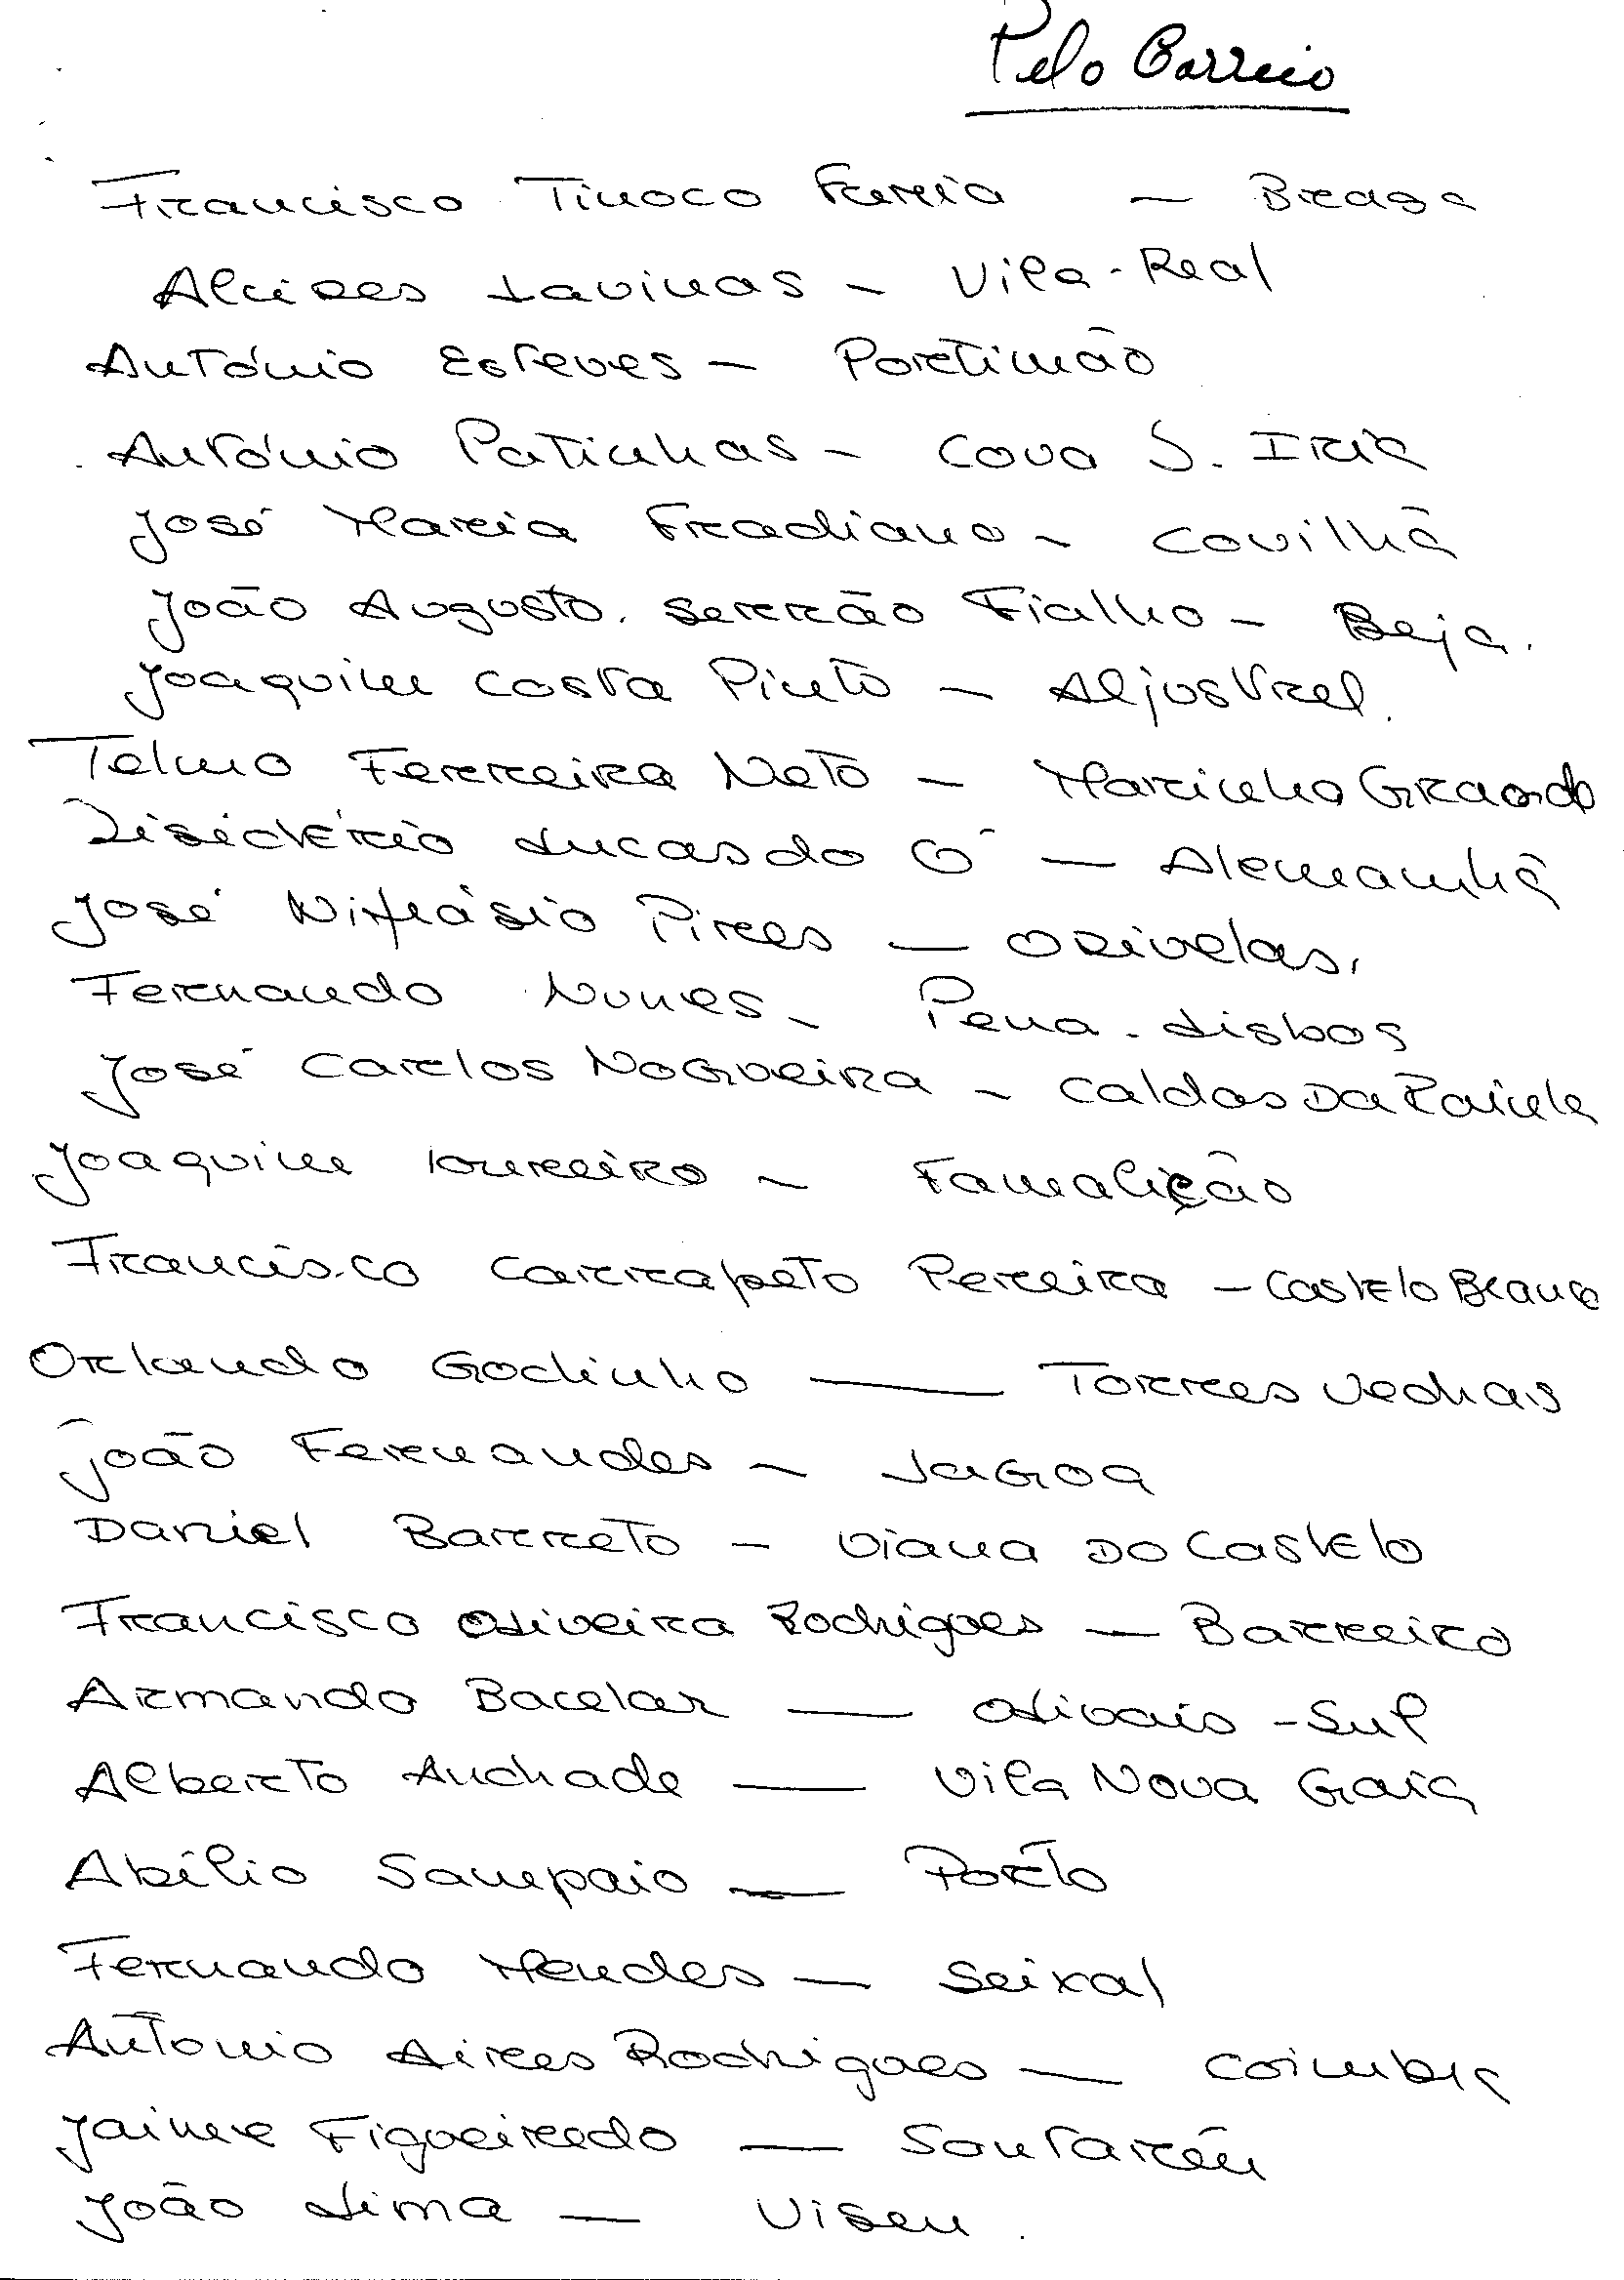 Pelo Correio
Francisco Tinoco Faria - Braga
Alcides Lavinas - Vila-Real
António Esteves - Portimão
António Patinhas - Cova S. Iria
José Maria Fradiano - Covilhã
João Augusto. Serrão Fialho - Beja.
Joaquim Costa Pinto - Aljustrel.
Telmo Ferreira Neto - Marinha Grande
Lucas do Ó - Alemanhã
José Pires - Odivelas,
Fernando Nunes - Pena - Lisboa
José Carlos Nogueira - Caldas Da Rainha
Joaquim Loureiro - Famalicão
Francisco Carrapeto Pereira - Castelo Branco
Orlando Godinho - Torres Vedras
João Fernandes - Lagoa
Daniel Barreto - Viana Do Castelo
Francisco Oliveira Rodrigues - Barreiro
Armando Bacelar - Olivais - Sul
Alberto Andrade - Vila Nova Gaia
Abílio Sampaio - Porto
Fernando Mendes - Seixal
António Aires Rodrigues - Coimbra
Jaime Figueiredo - Santarém
João Lima - Viseu.